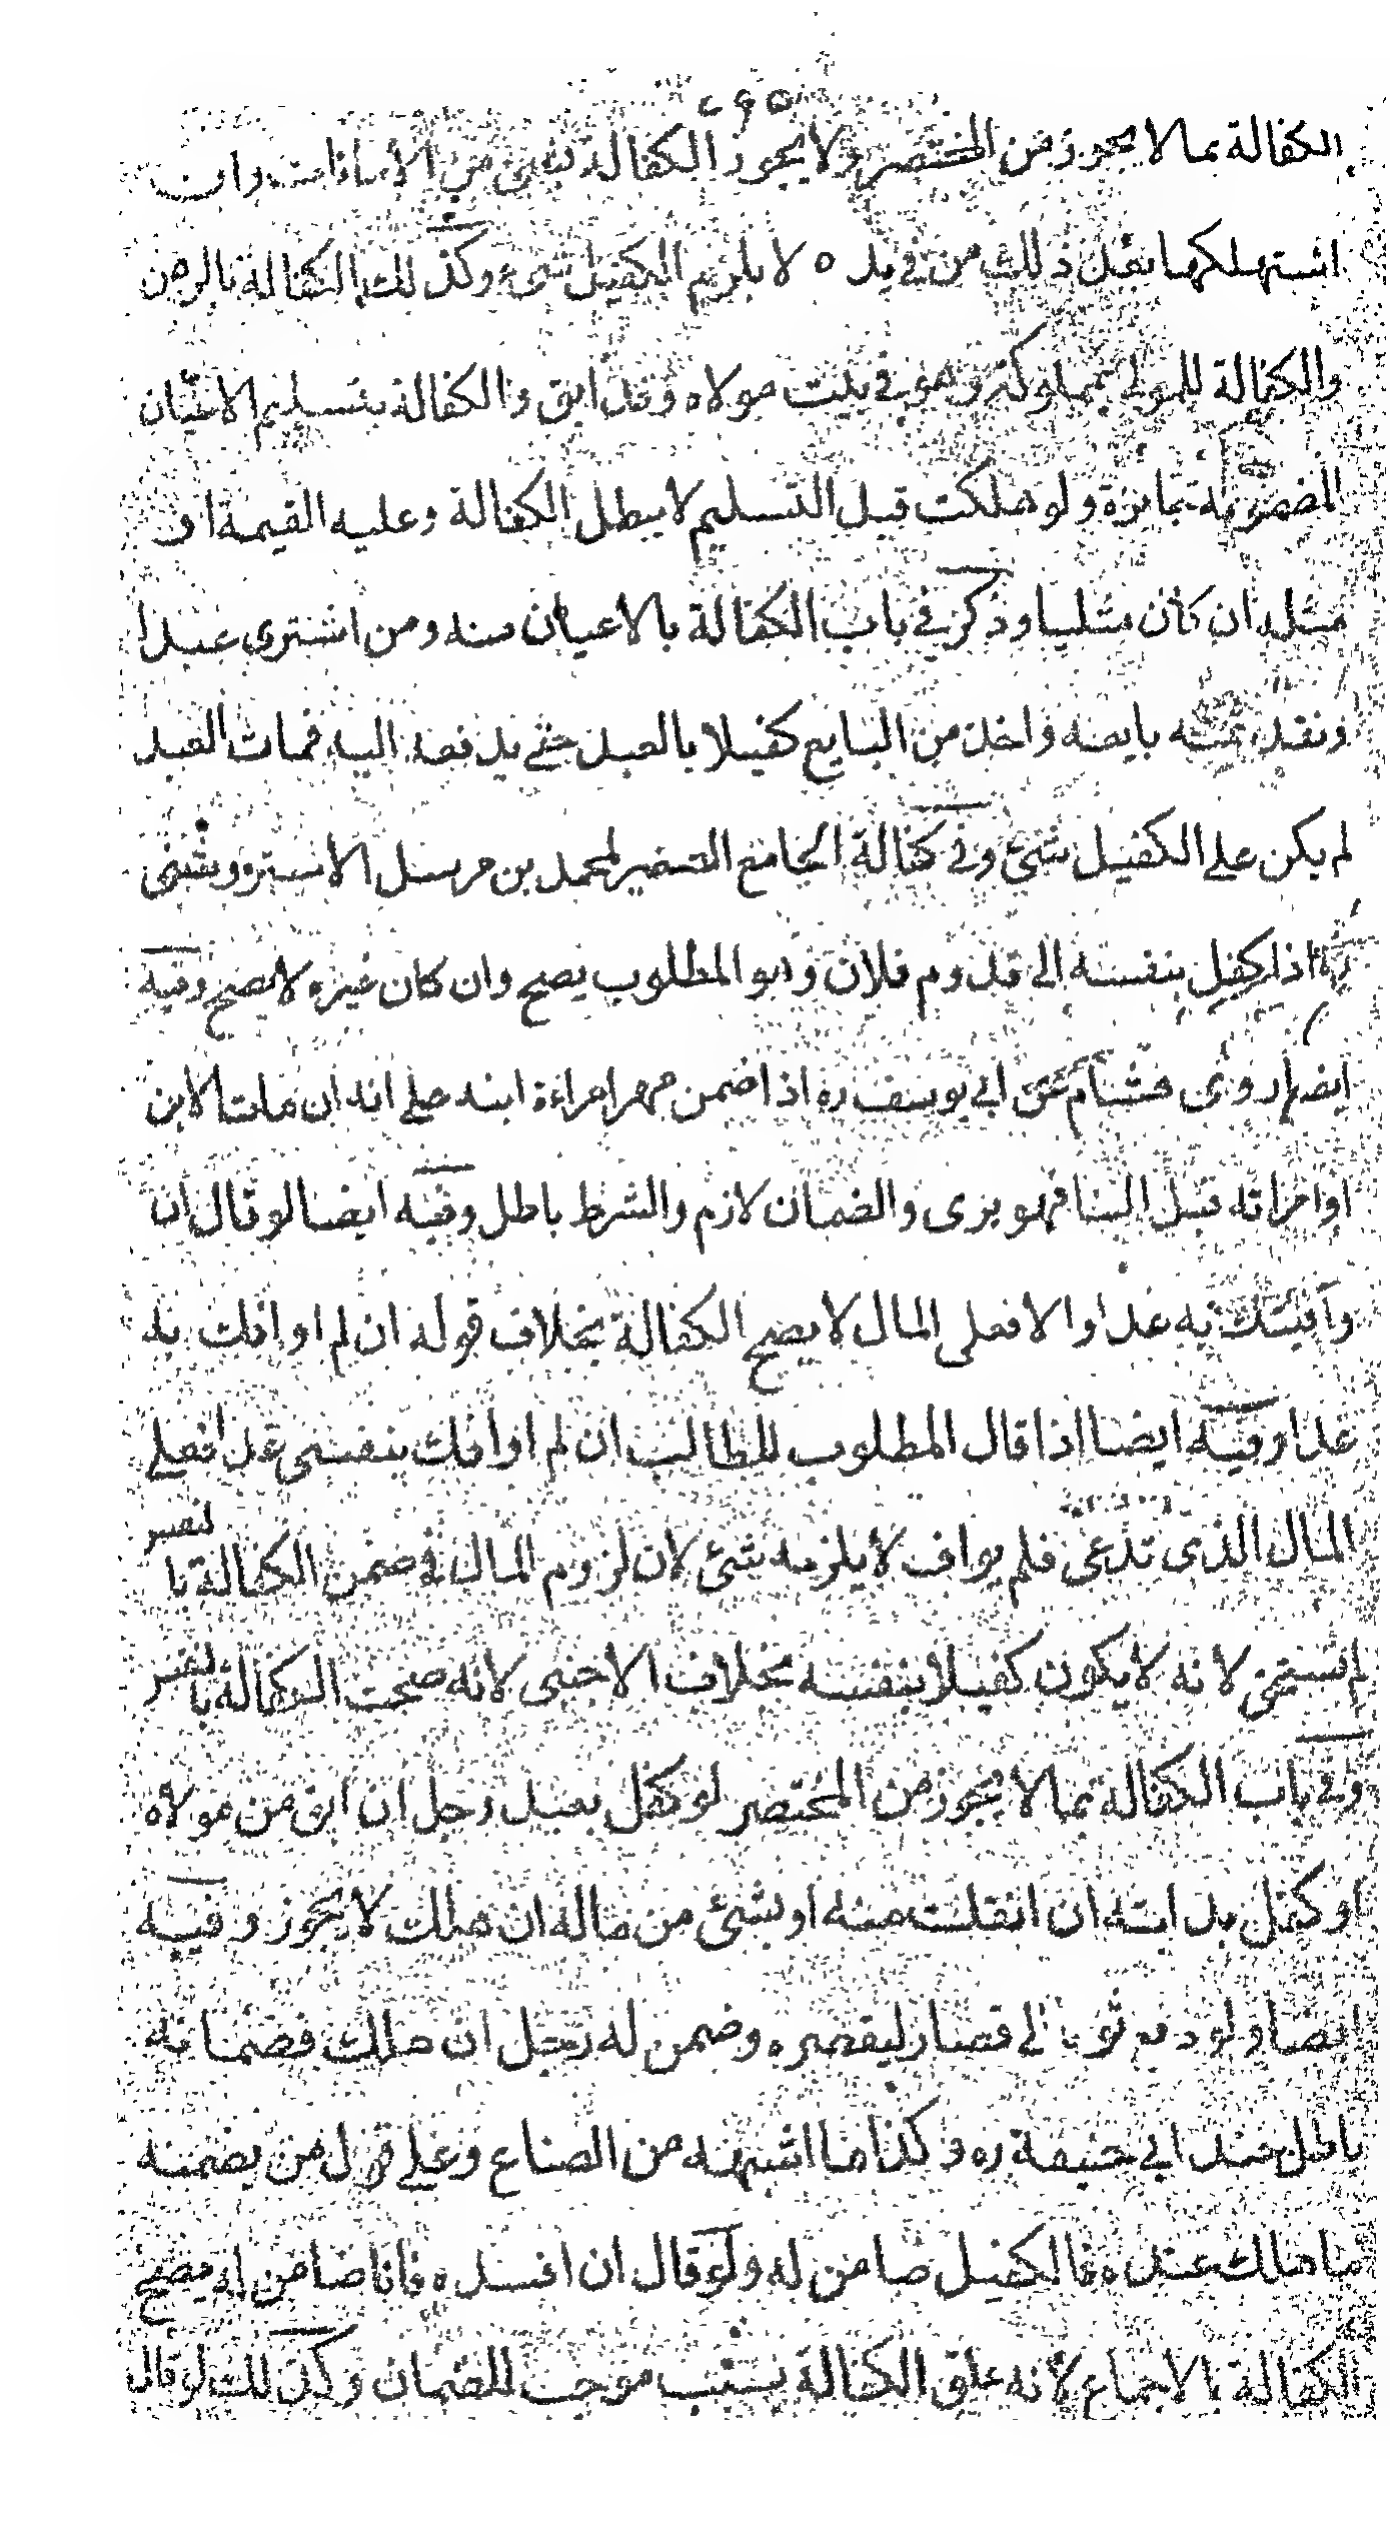 الكفالة بما لا يجوز من المختصر ولا يجوز الكفالة بشئ من الامانات وان
استهلكها بعد ذلك من في يده لا يلزم الكفيل شئ وكذلك الكفالة بالرهن
والكفالة للمولى بمملوكه وهو في بيت مولاه وقد ابق والكفالة بتسليم الاعيان
المضمونة جايزة ولو هلكت قبل التسليم لا يبطل الكفالة وعليه القيمة او
مثله ان كان مثليا وذكر في باب الكفالة بالاعيان منه ومن اشترى عبدا
ونقد ثمنه بايعه واخذ من البايع كفيلا بالعبد حتى يدفعه اليه فمات العبد
لم يكن على الكفيل شئ وفي كفالة الجامع الصغير لمحمد بن
ره اذا كفل بنفسه الى قدوم فلان وهو المطلوب يصح وان كان غيره لا يصح وفيه
ايضا روى هشام عن ابي يوسف ره اذا ضمن مهر امراءة ابنه على انه ان مات الابن
او امراته قبل البنا فهو برى والضمان لازم والشرط باطل وفيه ايضا لو قال ان
وافيتك به غدا والا فعلى المال لا يصح الكفالة بخلاف قوله ان لم اوافك به
غدا وفيه ايضا اذا قال المطلوب للطالب ان لم اوافك بنفسى غدا فعلى
المال الذى تدعى فلم يواف لا يلزمه شئ لان لزوم المال في ضمن الكفالة بالنفس
لانه لا يكون كفيلا بنفسه بخلاف الاجنبى لانه صحت الكفالة بالنفس
وفي باب الكفالة بما لا يجوز من المختصر لو كفل بعبد رجل ان ابق من مولاه
او كفل بدابته ان انفلتت منه او بشئ من ماله ان هلك لا يجوز وفيه
ايضا ولو دفع ثوبا الى قصار ليقصره وضمن له رجل ان هلك فضمانه
باطل عند ابي حنيفة ره وكذا ما اشبهه من الصناع وعلى قول من يضمنه
ما هلك عنده فالكفيل ضامن له ولو قال ان افسده فانا ضامن له يصح
الكفالة بالاجماع لانه علق الكفالة بسبب موجب للضمان وكذلك لو قال